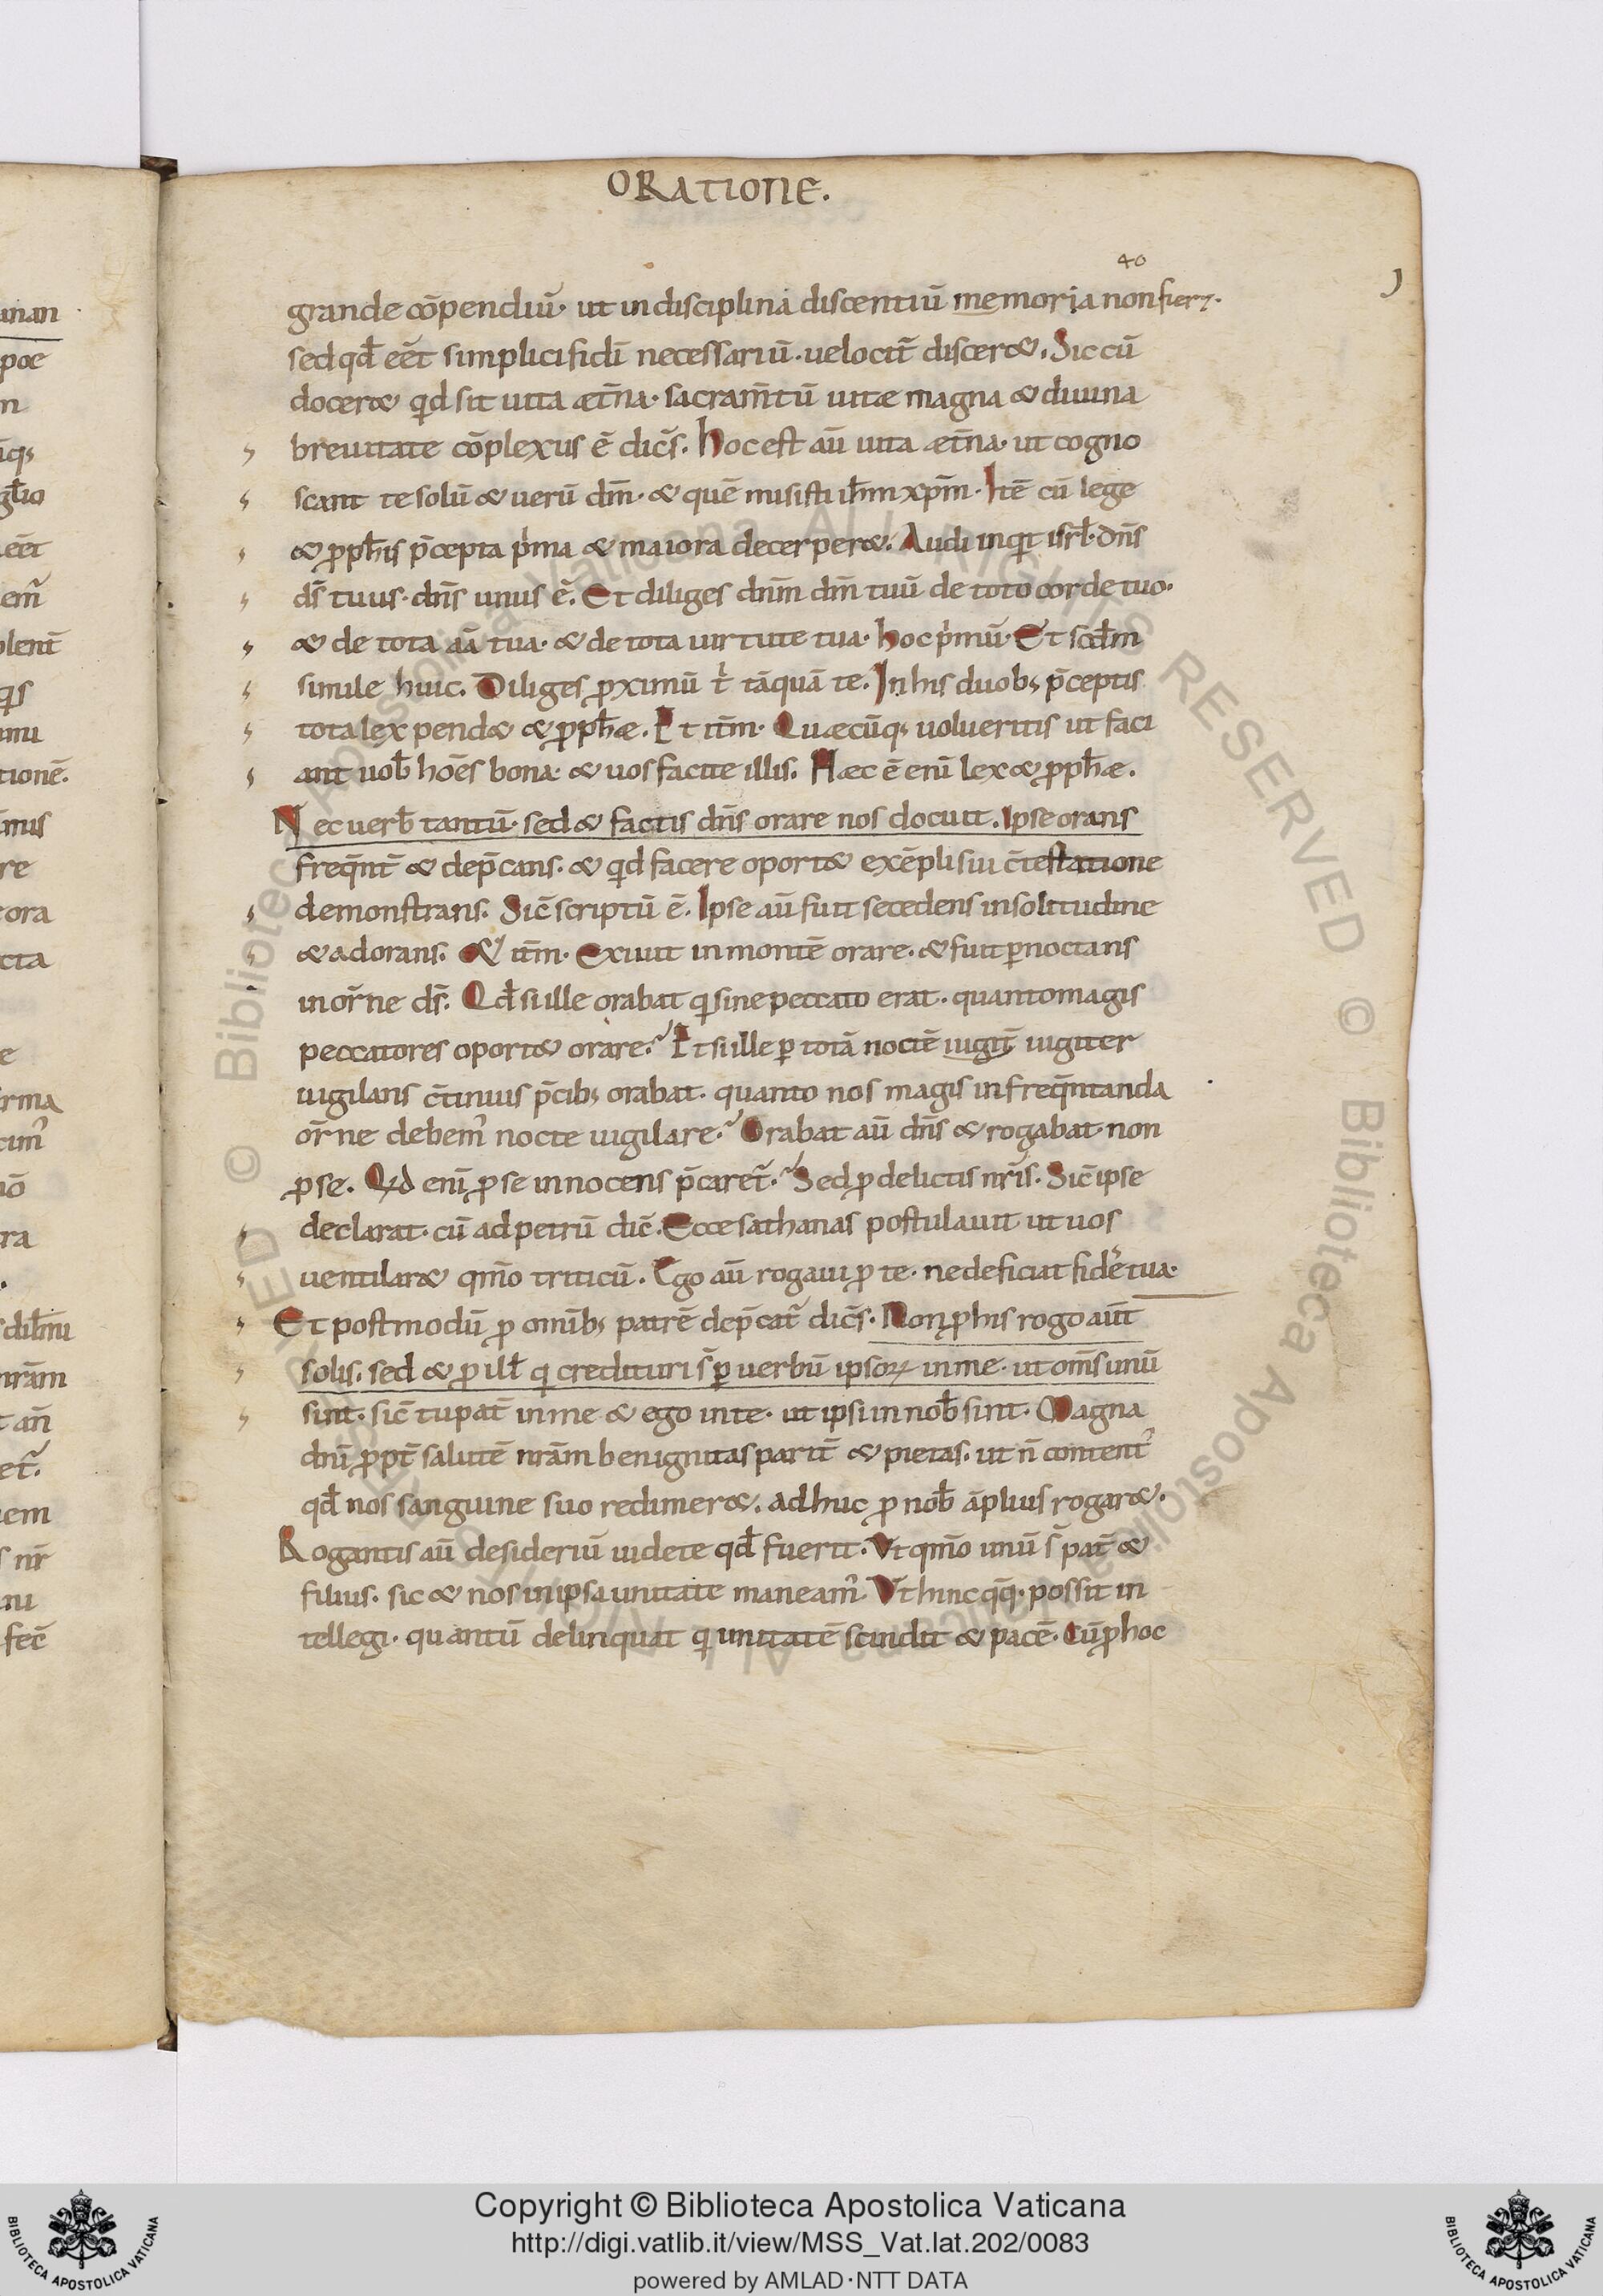 ORATIONE.
40
grande cōpendiū· ut in disciplina discentiū memoria non fierꝫ·
sed qđ eēt simplici fidī necessariū· uelocit̄ discer&. Sic cū
docer& qͥd sit uita æt̄na· sacram̄tū uitæ magna & diuina
breuitate cōplexus ē dic̄s. hoc est aū uita æt̄na· ut cogno
scant te solū & uerū dm̄· & quē misisti ih̄m xp̄m· Itē cū lege
& ꝓph̄is p̄cepta pͥma & maiora decerper&. Audi inqͥt isrł· dn̄s
ds̄ tuus· dn̄s unus ē. Et diliges dn̄m dm̄ tuū de toto corde tuo·
& de tota aā tua· & de tota uirtute tua· hoc pͥmū· Et scđm
simile huic. Diliges ꝓximū tͥ tāquā te. In his duobꝫ p̄ceptis
tota lex pend& & ꝓph̄æ. Et it̄m· Quæcūqꝫ uolueritis ut faci
ant uob̄ hoēs bona· & uos facite illis. Hæc ē enī lex & ꝓph̄æ.
Nec uerb̄ tantū· sed & factis dn̄s orare nos docuit. Ipse orans
freq̄nt̄ & dep̄cans· & qͥd facere oport& exēpli sui c̄testatione
demonstrans. Sic̄ scriptū ē. Ipse aū fuit secedens in solitudine
& adorans. & it̄m· Exiuit in montē orare· & fuit ꝑnoctans
in or̄ne dī. Qđ si ille orabat qͥ sine peccato erat· quanto magis
peccatores oport& orare? Et si ille ꝑ totā noctē iugit̄ iugiter
uigilans c̄tinuis p̄cibꝫ orabat· quanto nos magis in freq̄ntanda
or̄ne debemꝰ nocte uigilare? Orabat aū dn̄s & rogabat· non
ꝓ se. Qͥd enī ꝓ se innocens p̄caret᷑? Sed ꝓ delictis nr̄is. Sic̄ ipse
declarat· cū ad petrū dic̄. Ecce sathanas postulauit ut uos
uentilar& qm̄o triticū. Ego aū rogaui ꝓ te· ne deficiat fides tua·
Et postmodū ꝓ omībꝫ patrē dep̄cat᷑ dic̄s· Non ꝓ his rogo aut̄
solis. sed & ꝓ ill̄ qͥ credituri s̄ ꝑ uerbū ipsoꝝ in me· ut om̄s unū
sint· sic̄ tu pat̄ in me & ego in te· ut ipsi in nob̄ sint. Magna
dnī ꝓpt̄ salutē nr̄am benignitas parit̄ & pietas. ut n̄ content᷑
qđ nos sanguine suo redimer&. adhuc ꝓ nob̄ āplius rogar&.
Rogantis aū desideriū uidete qđ fuerit. Vt qm̄o unū s̄ pat̄ &
filius· sic & nos in ipsa unitate maneamꝰ. Vt hinc qq̄· possit in
tellegi· quantū delinquat qͥ unitatē scindit & pacē. Cū ꝓ hoc
Copyright © Biblioteca Apostolica Vaticana
http://digi.vatlib.it/view/MSS_Vat.lat.202/0083
powered by AMLAD·NTT DATA